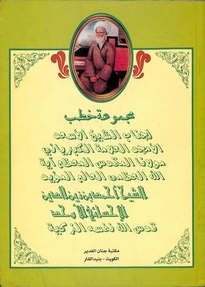 مجموعة خطب
لجناب الشيخ الأوحد
الأمجد العلامة الكبير الرباني
مولانا المقدس المعظم آية
الله العظمى العالم المؤيد
الشيخ أحمد بن زين الدين
الإحسائي الأوحد
قدس الله نفسه الزكية
مكتبة جنان الغدير
الكويت - بنيد القار